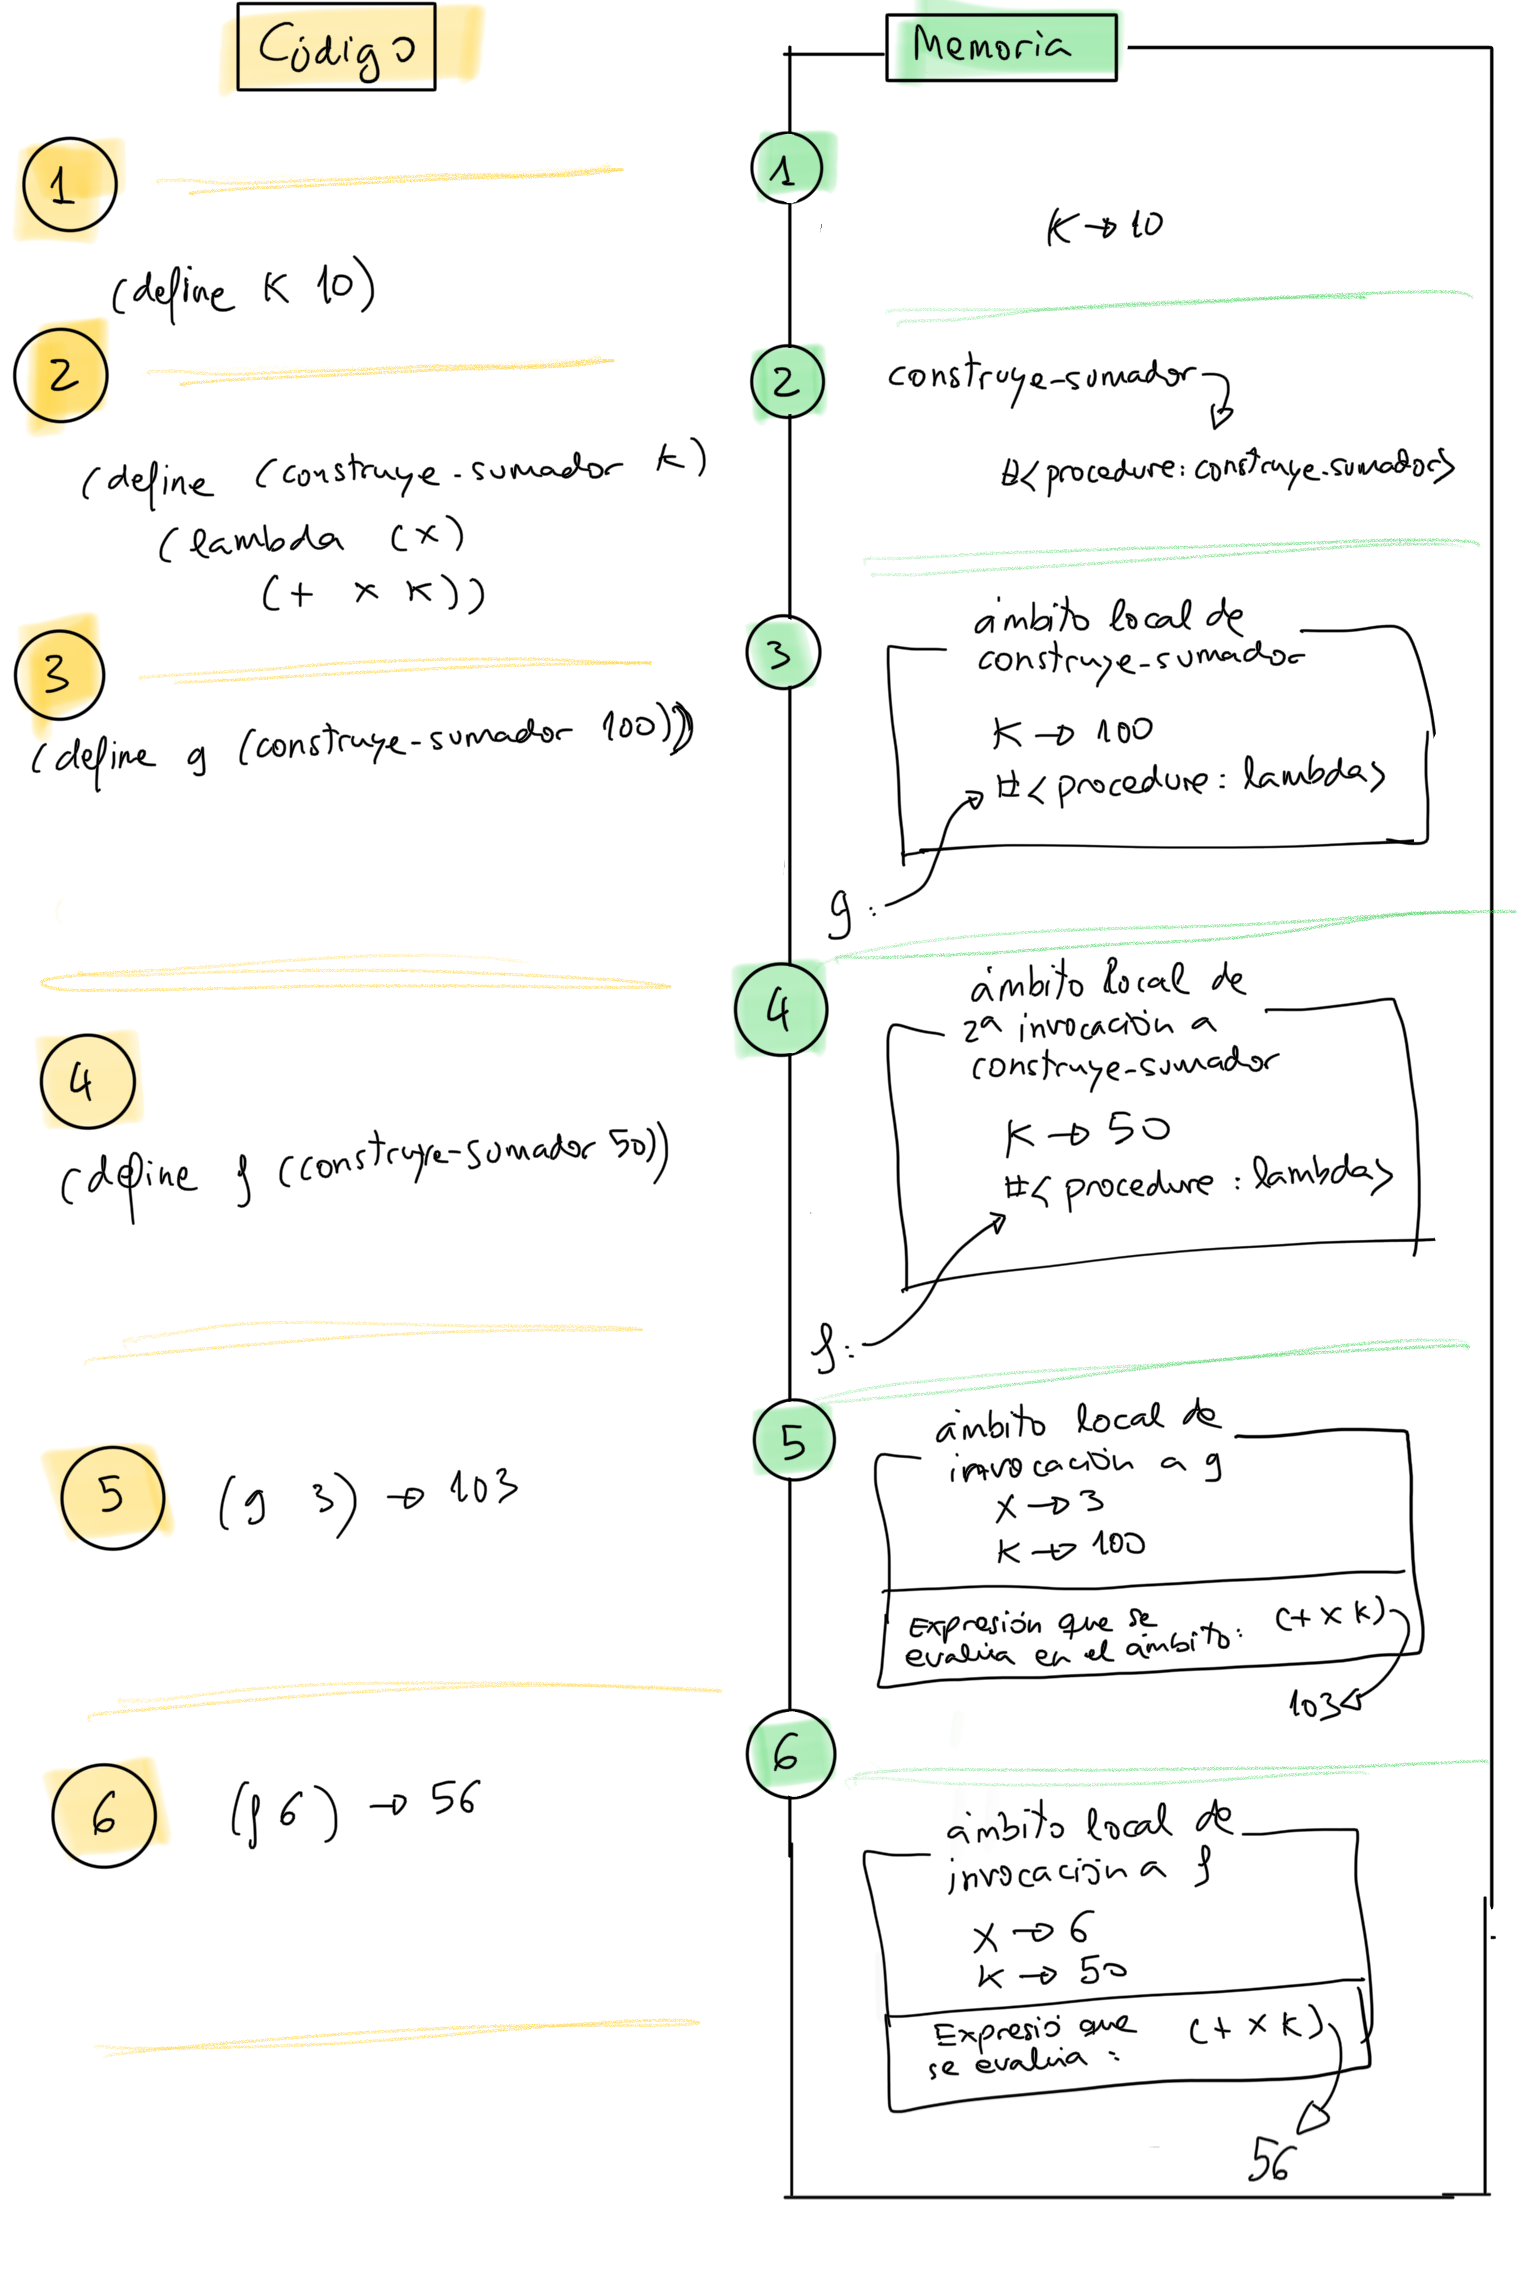 Código
1
(define K 10)
2
(define (construye-sumador k)
(lambda (x)
(+ x k))
3
(define g (construye-sumador 100)))
4
(define f (construye-sumador 50))
5
(g 3) → 103
6
(f 6) → 56
Memoria
1
K → 10
2
construye-sumador
#<procedure: construye-sumador>
3
ámbito local de
construye-sumador
K → 100
#<procedure: lambda>
g:
4
ámbito local de
2ª invocación a
construye-sumador
K → 50
#<procedure: lambda>
f:
5
ámbito local de
invocación a g
X → 3
K → 100
Expresión que se
evalúa en el ámbito: (+ x k)
103
6
ámbito local de
invocación a f
X → 6
K → 50
Expresió que
se evalúa: (+ x k)
56